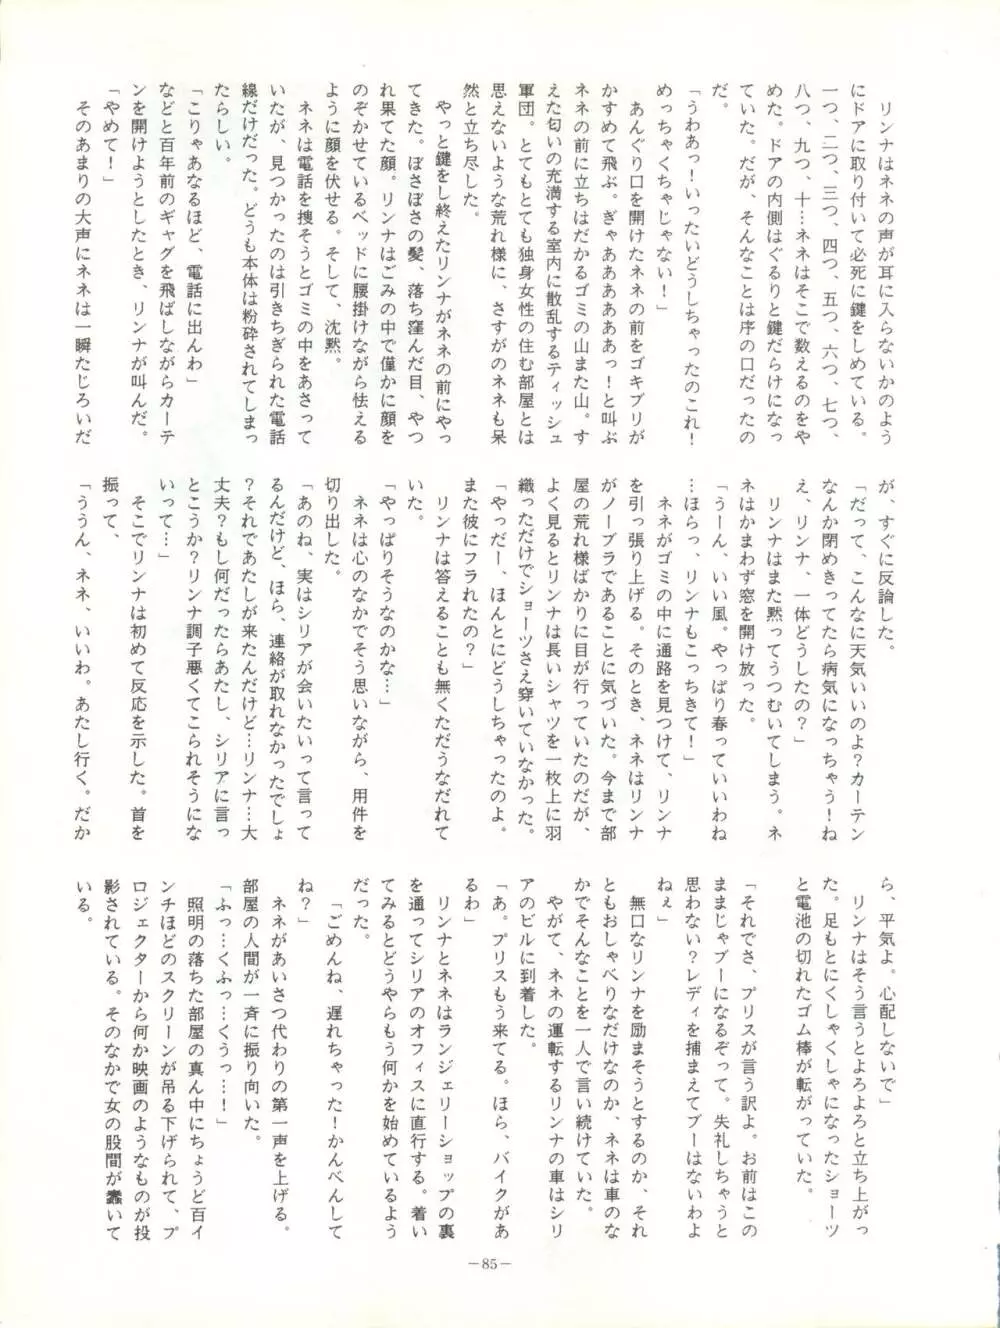 リンナはネネの声が耳に入らないかのよう
にドアに取り付いて必死に鍵をしめている。
一つ、二つ、三つ、四つ、五つ、六つ、七つ、
八つ、九つ、十…ネネはそこで数えるのをや
めた。ドアの内側はぐるりと鍵だらけになっ
ていた。だが、そんなことは序の口だったの
だ。
「うわあっ！いったいどうしちゃったのこれ！
めっちゃくちゃじゃない！」
　あんぐり口を開けたネネの前をゴキブリが
かすめて飛ぶ。ぎゃああああああっ！と叫ぶ
ネネの前に立ちはだかるゴミの山また山。す
えた匂いの充満する室内に散乱するティッシュ
軍団。とてもとても独身女性の住む部屋とは
思えないような荒れ様に、さすがのネネも呆
然と立ち尽した。
　やっと鍵をし終えたリンナがネネの前にやっ
てきた。ぼさぼさの髪、落ち窪んだ目、やつ
れ果てた顔。リンナはごみの中で僅かに顔を
のぞかせているベッドに腰掛けながら怯える
ように顔を伏せる。そして、沈黙。
　ネネは電話を捜そうとゴミの中をあさって
いたが、見つかったのは引きちぎられた電話
線だけだった。どうも本体は粉砕されてしまっ
たらしい。
「こりゃあなるほど、電話に出んわ」
などと百年前のギャグを飛ばしながらカーテ
ンを開けようとしたとき、リンナが叫んだ。
「やめて！」
　そのあまりの大声にネネは一瞬たじろいだ
が、すぐに反論した。
「だって、こんなに天気いいのよ？カーテン
なんか閉めきってたら病気になっちゃう！ね
え、リンナ、一体どうしたの？」
　リンナはまた黙ってうつむいてしまう。ネ
ネはかまわず窓を開け放った。
「うーん、いい風。やっぱり春っていいわね
…ほらっ、リンナもこっちきて！」
　ネネがゴミの中に通路を見つけて、リンナ
を引っ張り上げる。そのとき、ネネはリンナ
がノーブラであることに気づいた。今まで部
屋の荒れ様ばかりに目が行っていたのだが、
よく見るとリンナは長いシャツを一枚上に羽
織っただけでショーツさえ穿いていなかった。
「やっだー、ほんとにどうしちゃったのよ。
また彼にフラれたの？」
　リンナは答えることも無くただうなだれて
いた。
「やっぱりそうなのかな…」
　ネネは心のなかでそう思いながら、用件を
切り出した。
「あのね、実はシリアが会いたいって言って
るんだけど、ほら、連絡が取れなかったでしょ
？それであたしが来たんだけど…リンナ…大
丈夫？もし何だったらあたし、シリアに言っ
とこうか？リンナ調子悪くてこられそうにな
いって…」
　そこでリンナは初めて反応を示した。首を
振って、
「ううん、ネネ、いいわ。あたし行く。だか
ら、平気よ。心配しないで」
　リンナはそう言うとよろよろと立ち上がっ
た。足もとにくしゃくしゃになったショーツ
と電池の切れたゴム棒が転がっていた。
「それでさ、プリスが言う訳よ。お前はこの
ままじゃブーになるぞって。失礼しちゃうと
思わない？レディを捕まえてブーはないわよ
ねぇ」
　無口なリンナを励まそうとするのか、それ
ともおしゃべりなだけなのか、ネネは車のな
かでそんなことを一人で言い続けていた。
　やがて、ネネの運転するリンナの車はシリ
アのビルに到着した。
「あ。プリスもう来てる。ほら、バイクがあ
るわ」
　リンナとネネはランジェリーショップの裏
を通ってシリアのオフィスに直行する。着い
てみるとどうやらもう何かを始めているよう
だった。
「ごめんね、遅れちゃった！かんべんして
ね？」
　ネネがあいさつ代わりの第一声を上げる。
部屋の人間が一斉に振り向いた。
「ふっ…くふっ…くうっ…！」
　照明の落ちた部屋の真ん中にちょうど百イ
ンチほどのスクリーンが吊る下げられて、プ
ロジェクターから何か映画のようなものが投
影されている。そのなかで女の股間が蠢いて
いる。
－85－